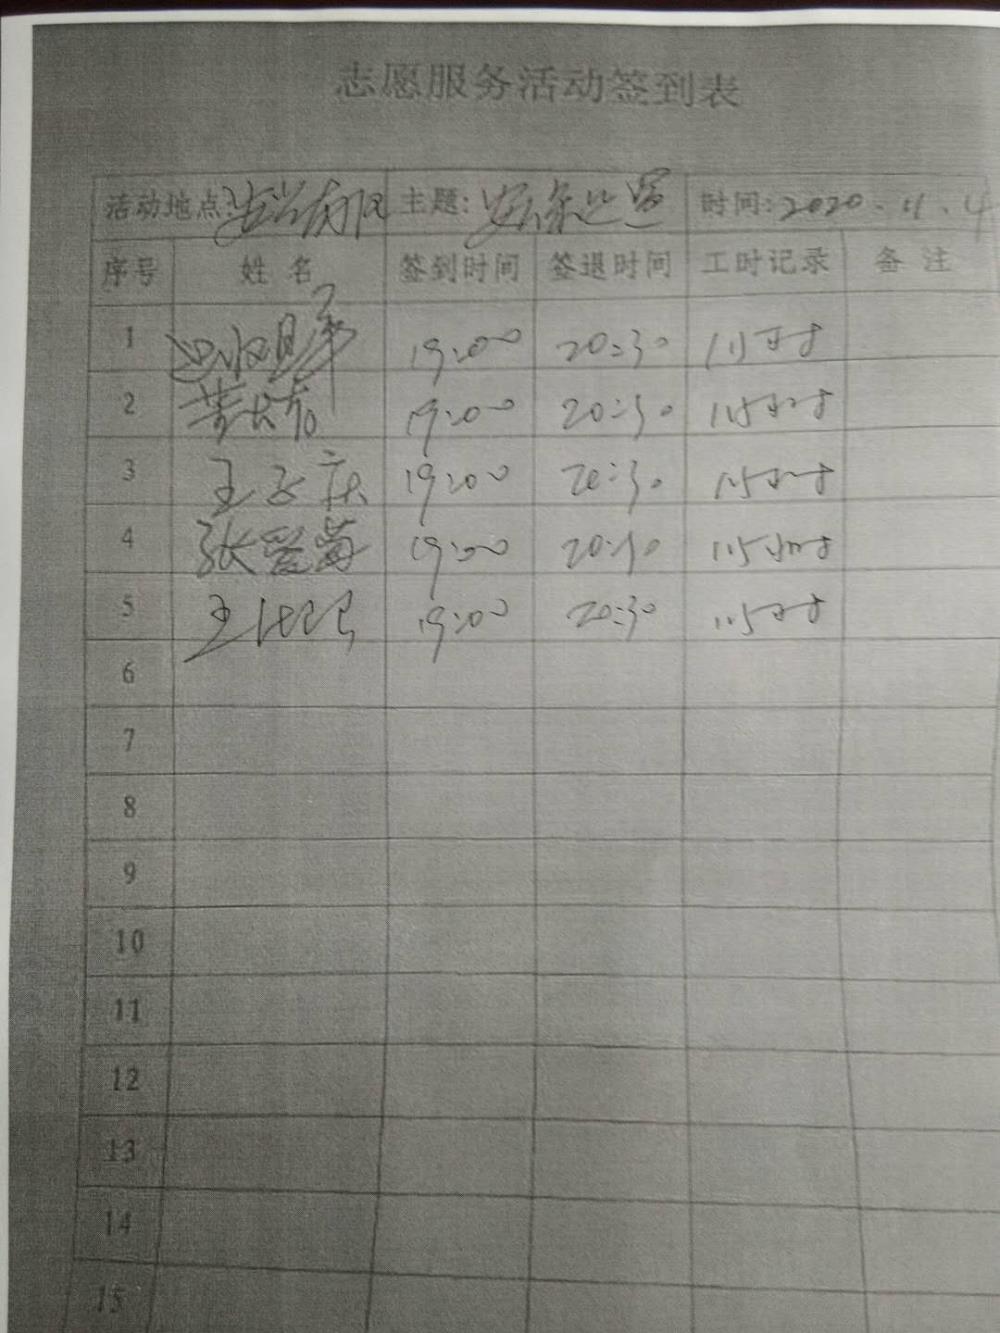 志愿服务活动签到表
活动地点: 主题: 时间:2020.11.4
序号 姓名 签到时间 签退时间 工时记录 备注
1 19:00 20:30
2 19:00 20:30 1.5小时
3 王子庆 19:00 20:30 1.5小时
4 张爱菊 19:00 20:30 1.5小时
5 王 19:00 20:30 1.5小时
6
7
8
9
10
11
12
13
14
15